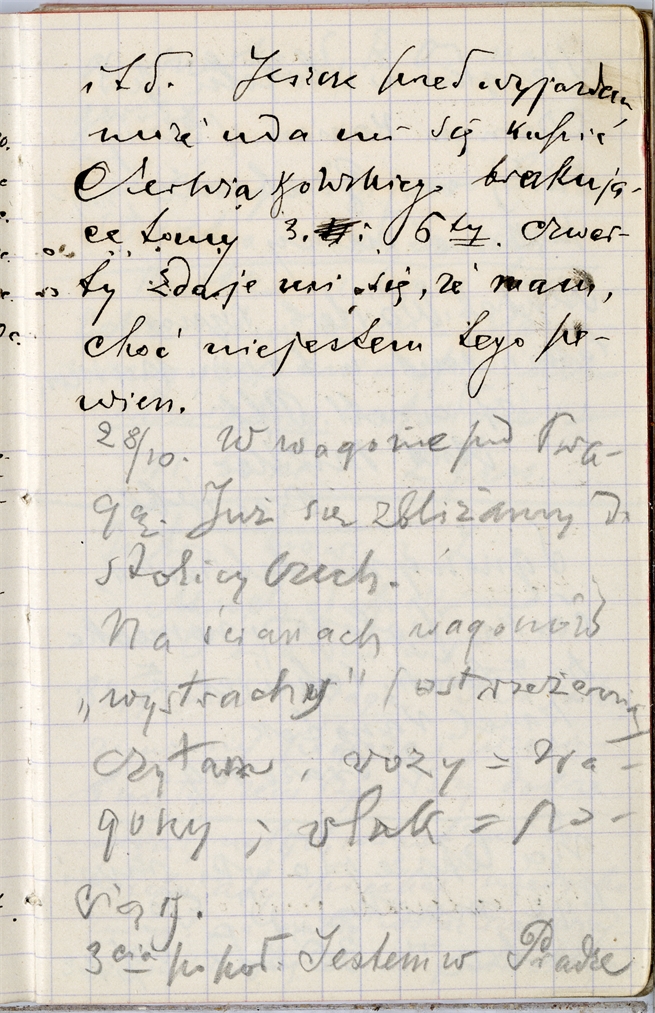 itd. Jeszcze przed wyjazdem,
może uda mi się kupić
Czerwiakowskiego brakują-
ce tomy 3. i 6ty. Czwar-
ty zdaje mi się, że mam,
choć niejestem tego pe-
wien.
28/10. W wagonie pod Pra-
gą. Już się zbliżamy do
stolicy Czech.
Na ścianach wagonów
„wystrachy" (ostrzeżenia)
czytam, vozy = wa-
gony; vlak = po-
ciąg.
3cia po poł. Jestem w Pradze